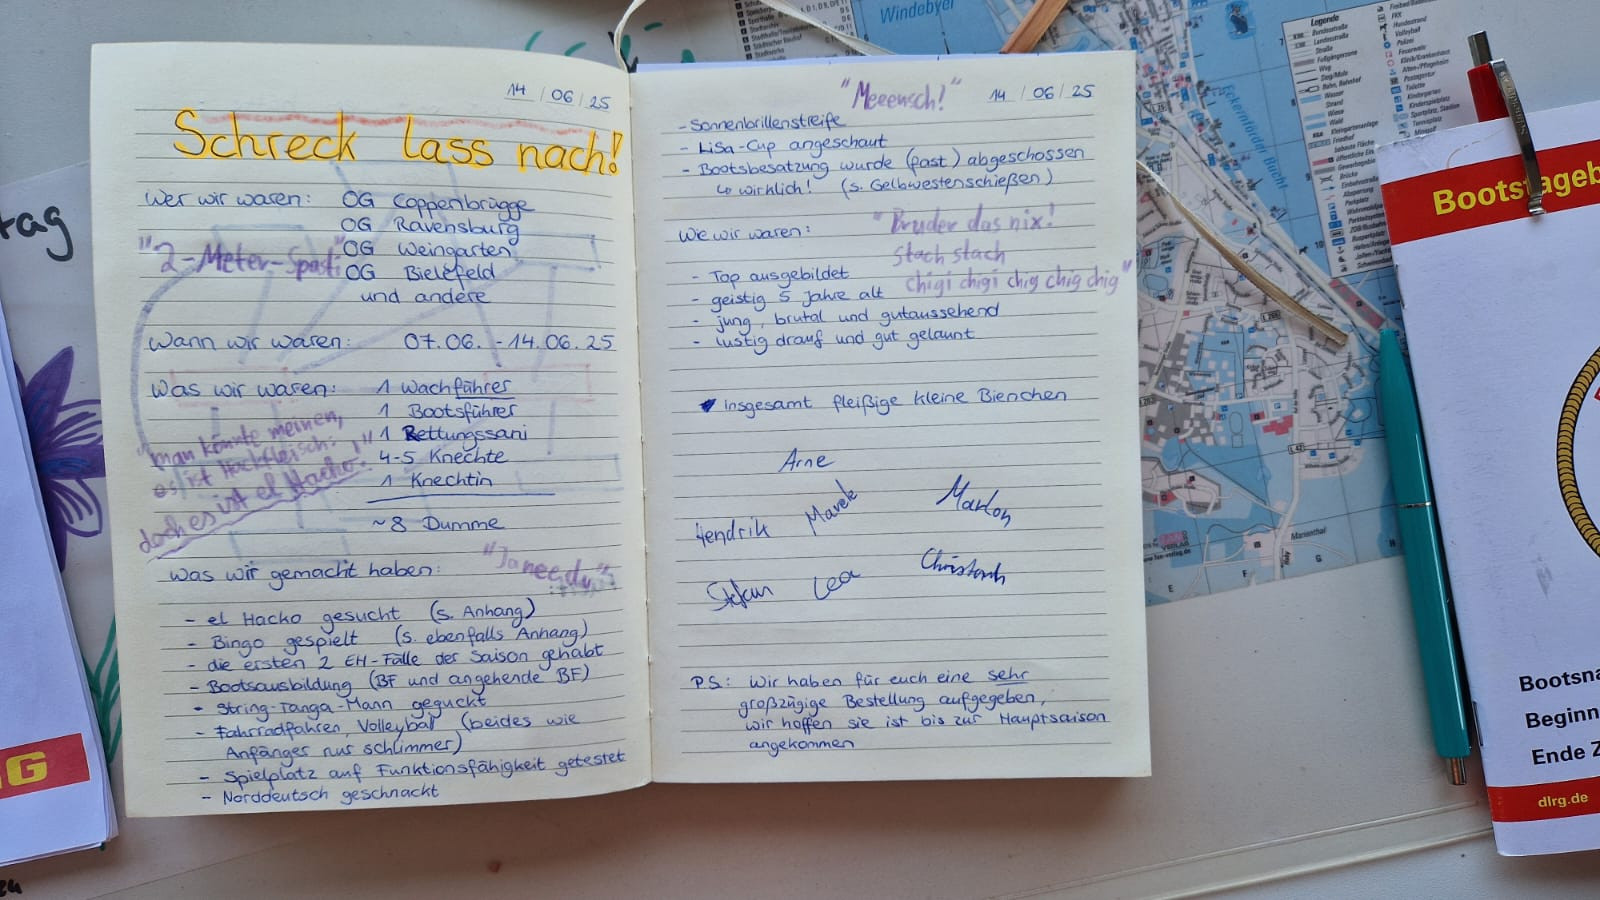 14 / 06 / 25
Schreck lass nach!
Wer wir waren: OG Coppenbrügge
OG Ravensburg
"2-Meter-Spasti"
OG Weingarten
OG Bielefeld
und andere
Wann wir waren: 07.06. - 14.06.25
Was wir waren: 1 Wachführer
1 Bootsführer
1 Rettungssani
4-5 Knechte
1 Knechtin
~8 Dumme
"man könnte meinen,
es ist Hackfleisch:
doch es ist el Hacko!"
Was wir gemacht haben:
"Janee, du"
- el Hacko gesucht (s. Anhang)
- Bingo gespielt (s. ebenfalls Anhang)
- die ersten 2 EH-Fälle der Saison gehabt
- Bootsausbildung (BF und angehende BF)
- String-Tanga-Mann geguckt
- Fahrradfahren, Volleyball (beides wie
Anfänger nur schlimmer)
- Spielplatz auf Funktionsfähigkeit getestet
- Norddeutsch geschnackt
"Meeensch!"
14 / 06 / 25
- Sonnenbrillenstreife
- LiSa-Cup angeschaut
- Bootsbesatzung wurde (fast) abgeschossen
↳ wirklich! (s. Gelbwestenschießen)
Wie wir waren:
"Bruder das nix!
Stach stach
chigi chigi chig chig chig"
- Top ausgebildet
- geistig 5 Jahre alt
- jung, brutal und gutaussehend
- lustig drauf und gut gelaunt
insgesamt fleißige kleine Bienchen
Arne
Hendrik
Marek
Marlon
Stefan
Lea
Christoph
P.S.: Wir haben für euch eine sehr
großzügige Bestellung aufgegeben,
wir hoffen sie ist bis zur Hauptsaison
angekommen
tag
G
Windebyer
Eckernförder Bucht
Legende
Marienthal
Bootstageb
Bootsna
Beginn
Ende Z
dlrg.de